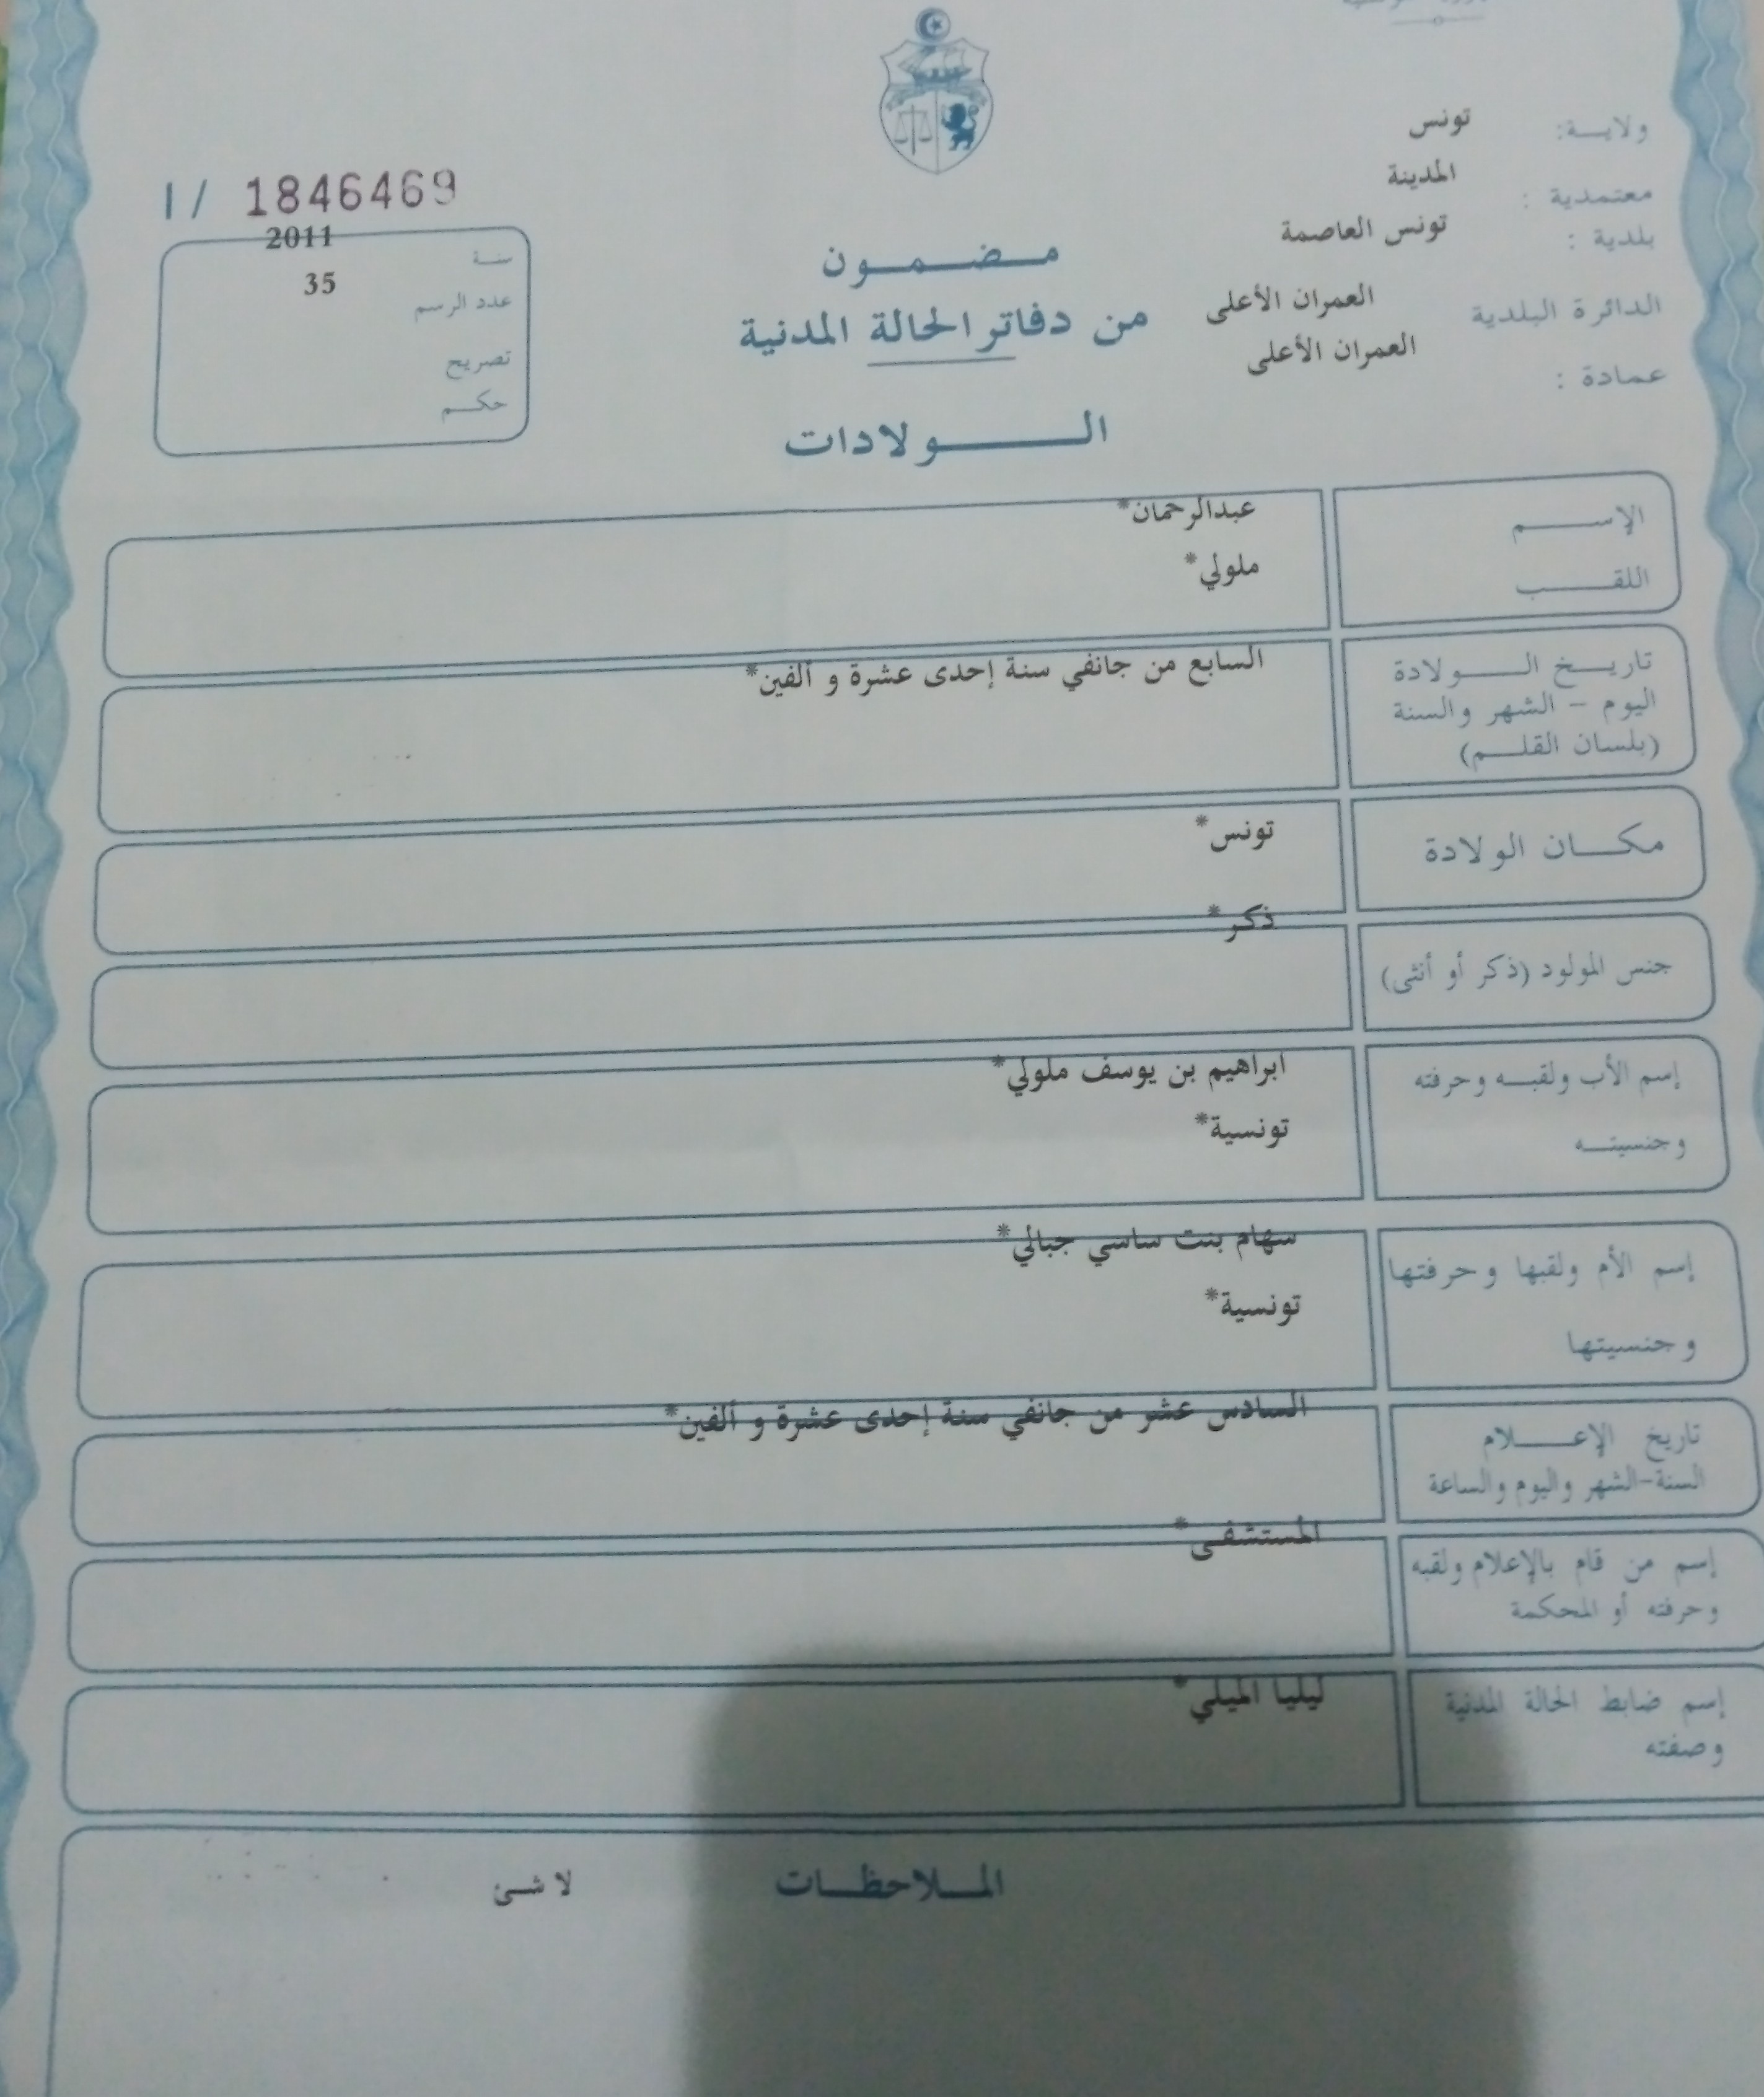 ولايـــة: تونس
معتمدية : المدينة
بلدية : تونس العاصمة
الدائرة البلدية العمران الأعلى
عمادة : العمران الأعلى
مـضـمـون
من دفاتر الحالة المدنية
الـــولادات
I / 1846469
سنـة 2011
عدد الرسم 35
تصريح
حكـم
الإســـم عبدالرحمان*
اللقـــب ملولي*
تاريــخ الـــولادة السابع من جانفي سنة إحدى عشرة و ألفين*
اليوم - الشهر والسنة
(بلسان القلــم)
مكـــان الولادة تونس*
جنس المولود (ذكر أو أنثى) ذكر*
إسم الأب ولقبـه وحرفته ابراهيم بن يوسف ملولي*
وجنسيتــه تونسية*
إسم الأم ولقبها وحرفتها سهام بنت ساسي جبالي*
وجنسيتها تونسية*
تاريخ الإعـــلام السادس عشر من جانفي سنة إحدى عشرة و ألفين*
السنة-الشهر واليوم والساعة
إسم من قام بالإعلام ولقبه المستشفى*
وحرفته أو المحكمة
إسم ضابط الحالة المدنية ليليا الميلي*
وصفته
المــلاحظــات لا شئ